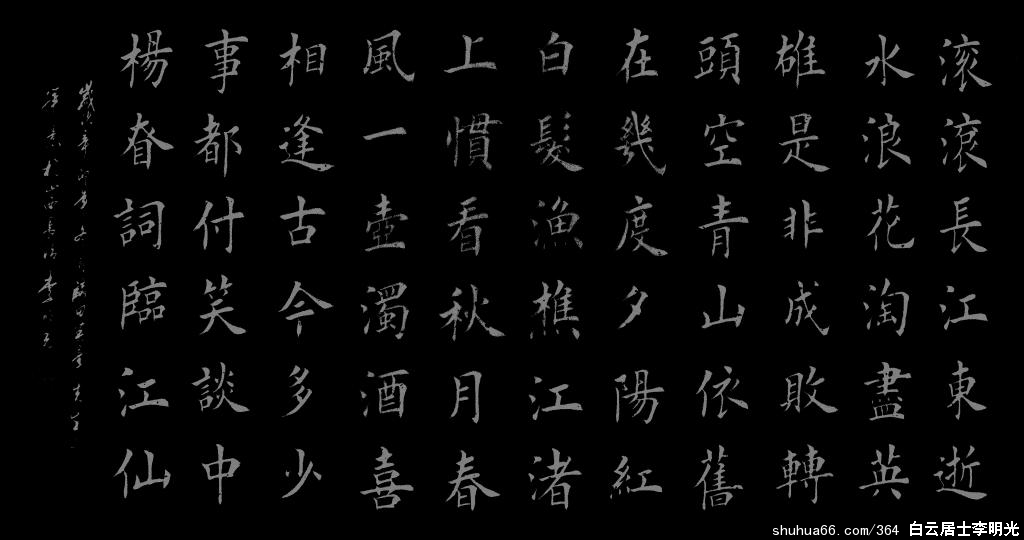 滚滾長江東逝
水浪花淘盡英
雄是非成敗轉
頭空青山依舊
在幾度夕陽紅
白髮漁樵江渚
上慣看秋月春
風一壺濁酒喜
相逢古今多少
事都付笑談中
楊眘詞臨江仙
歲次辛卯 月臨田英章先生
李明光
shuhua66.com/364 白云居士李明光